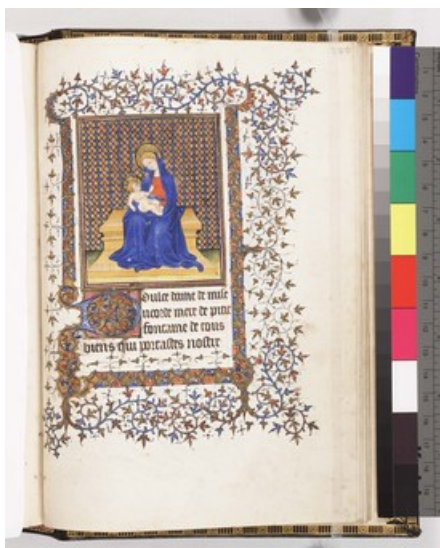 Doulce dame de mise
ricorde mere de pitie
fontaine de tous
biens qui portastes nostre